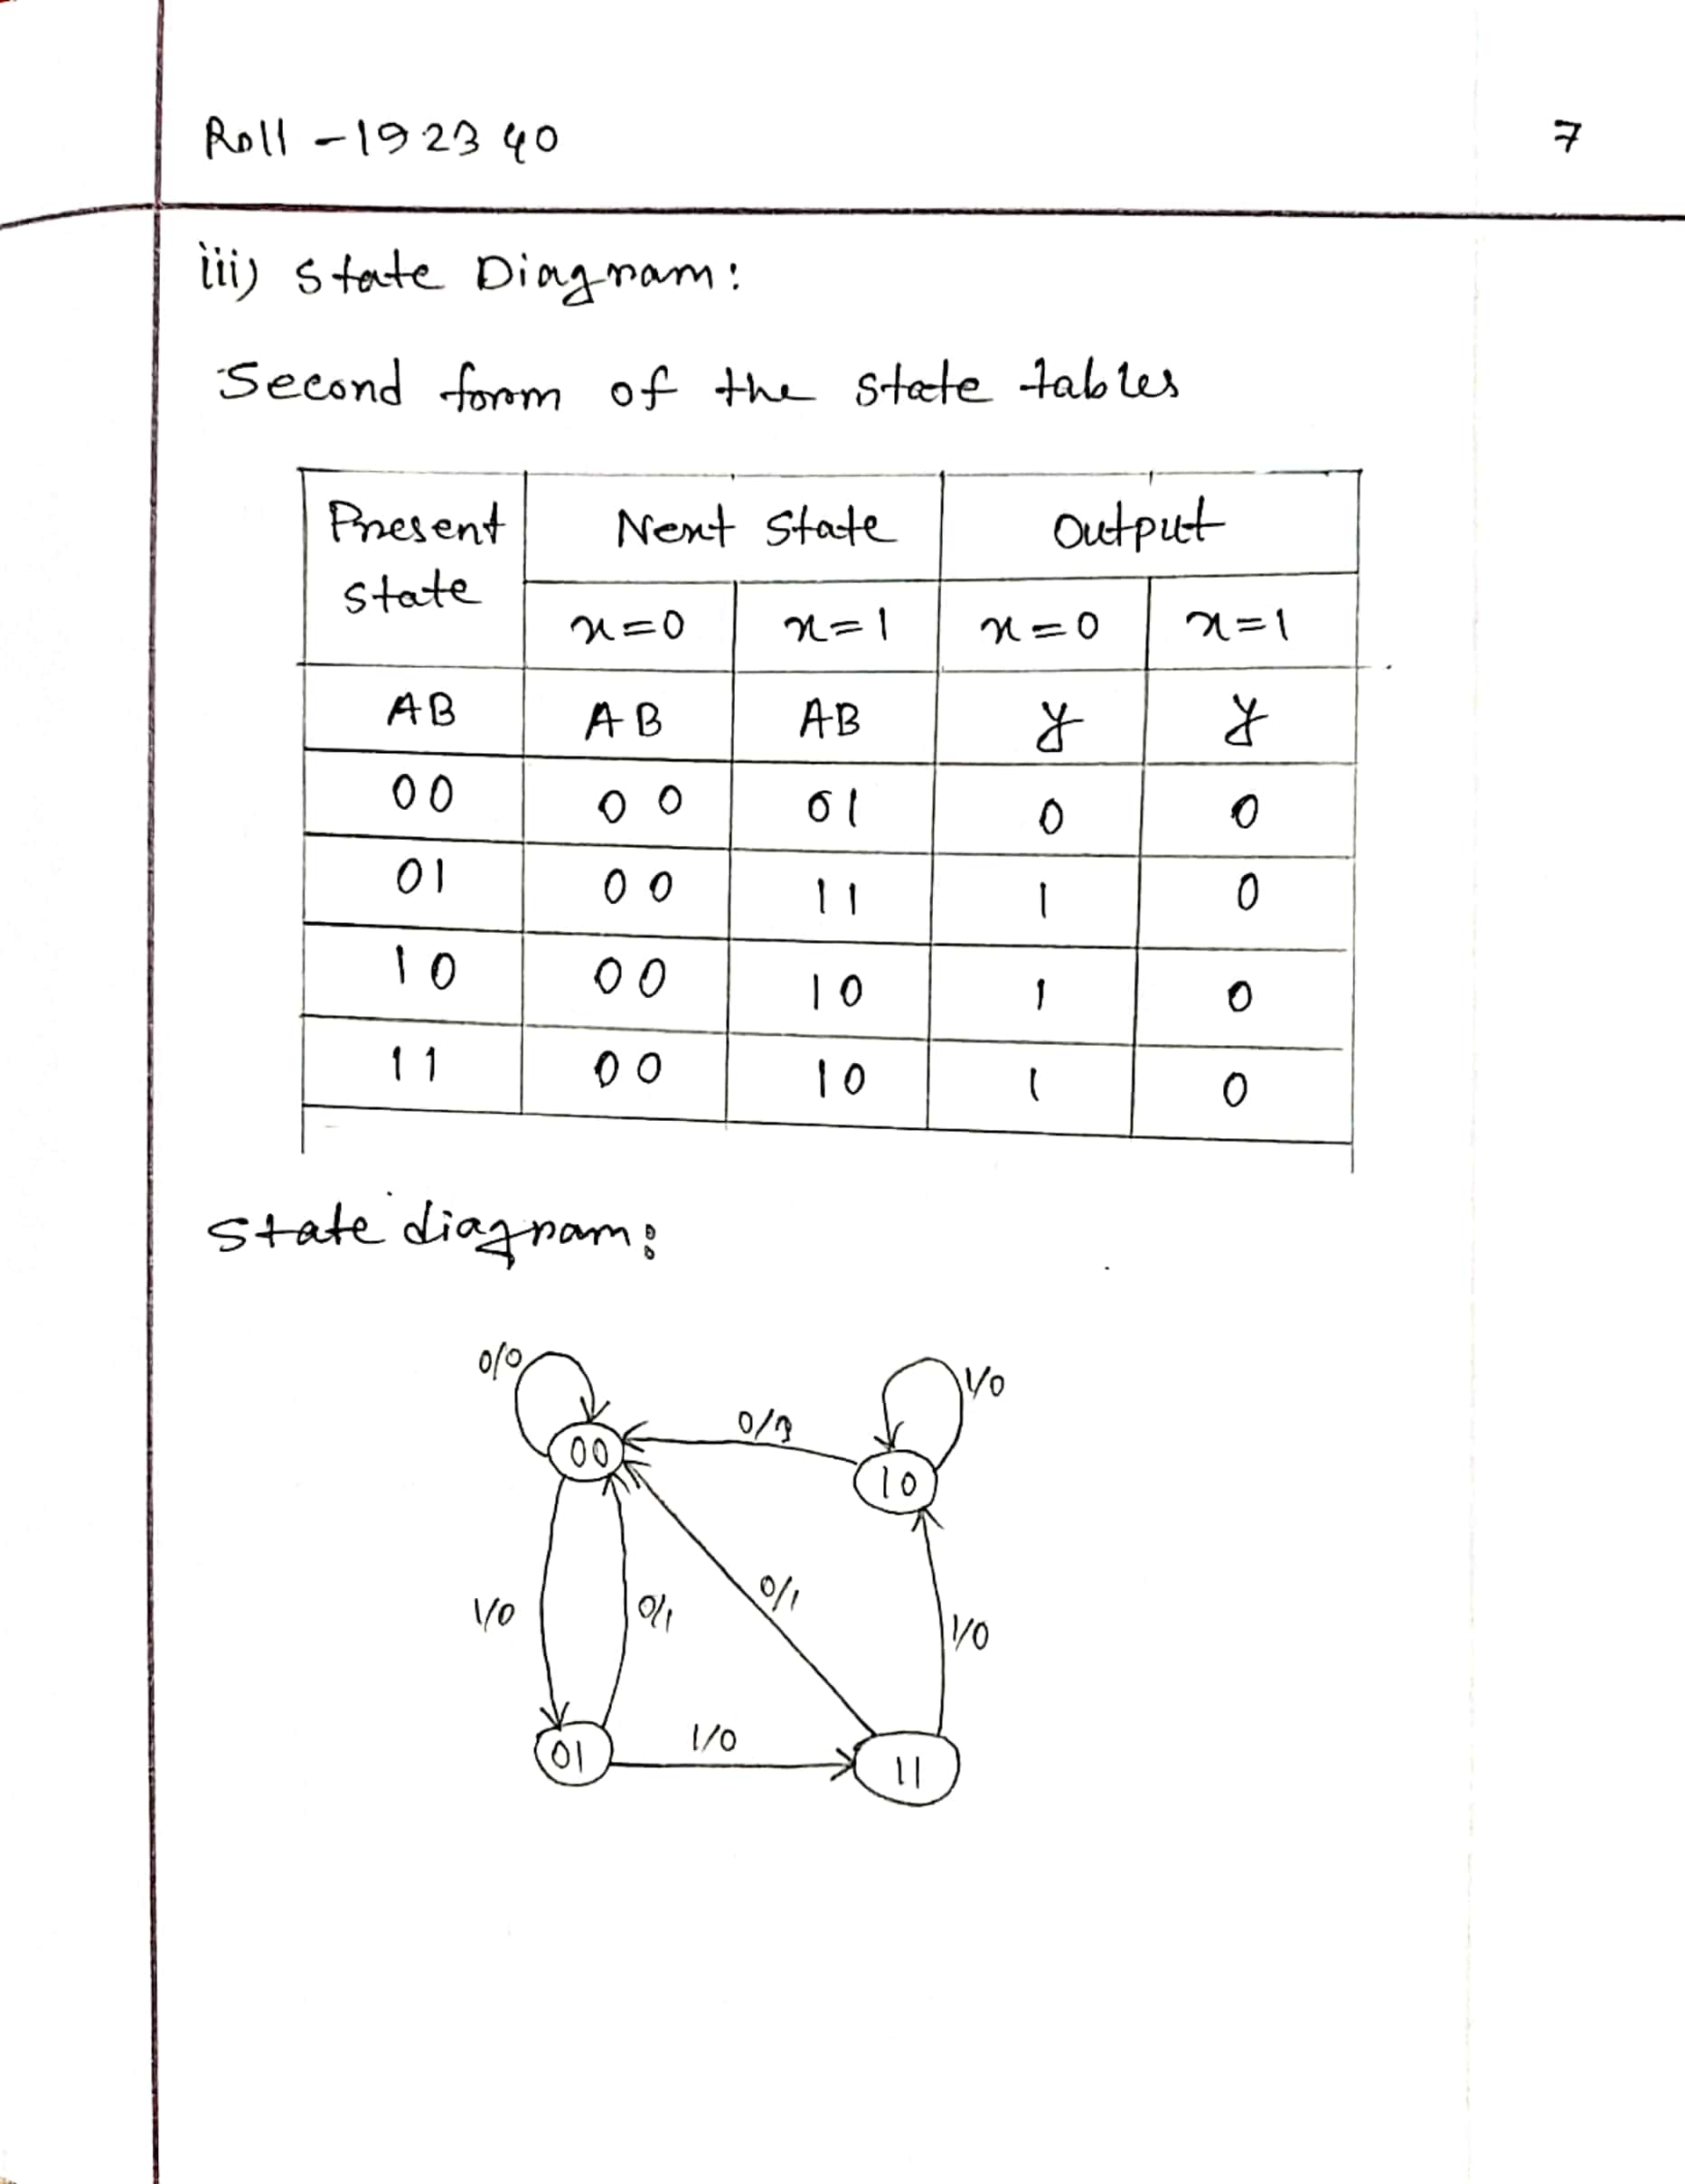 Roll - 192340
7
iii) State Diagram:
Second form of the state tables
Present state | Next State | Output
x=0 | x=1 | x=0 | x=1
AB | AB | AB | y | y
00 | 00 | 01 | 0 | 0
01 | 00 | 11 | 1 | 0
10 | 00 | 10 | 1 | 0
11 | 00 | 10 | 1 | 0
State diagram:
0/0
1/0
0/
00
10
0/1
1/0
0/1
1/0
1/0
01
11